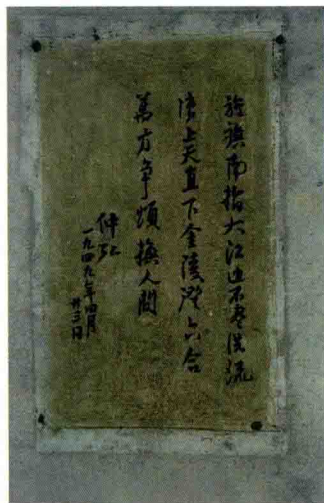 旌旗南指大江边不盡洪流
湧上天直下金陵澄六合
萬方争頌換人間
仲弘
一九四九年四月
廿三日